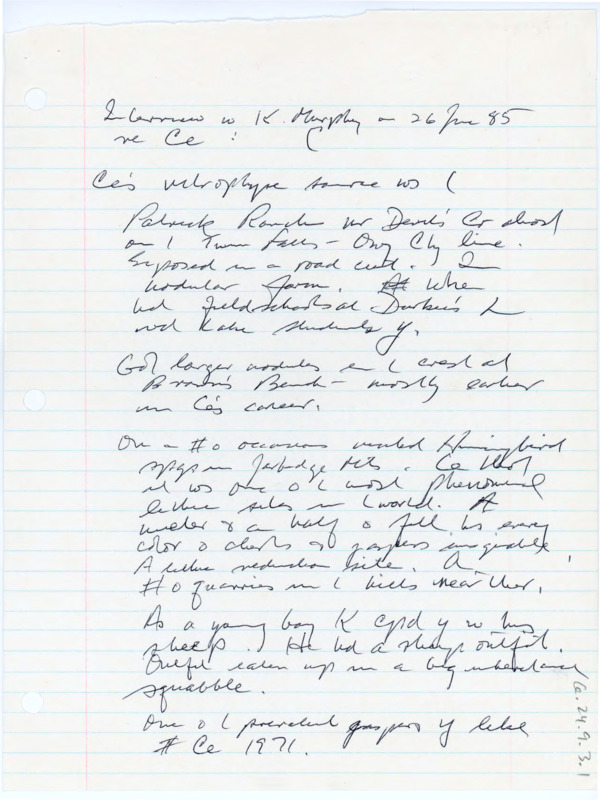 Interview w K. Murphy on 26 June 85
re Ce : (
Ce's vitrophyre source ws (
Patrick Ranch nr Devil's Cr almost
on l Twin Falls – Owy Cty line.
Exposed in a road cut. In
nodular form. When
hd fieldschools at Durkee's L
wd take students y.
Got larger nodules on l crest at
Brown's Bench – mostly earlier
in Ce's career.
On a # o occasions visited Hummingbird
spgs in Jarbidge Mts. Ce thot
it ws one o l most phenomenal
lithic sites in l world. A
meter & a half o fill hs every
color o cherts & jaspers imaginable.
A lithic reduction site. A
# o quarries in l hills near ther.
As a young boy K cpd y w his
sheep. He hd a sheep outfit.
Outfit eaten up in a big inheritance
squabble.
One o l prevalent jaspers y like
# Ce 1971.
Ce.24.9.3.1